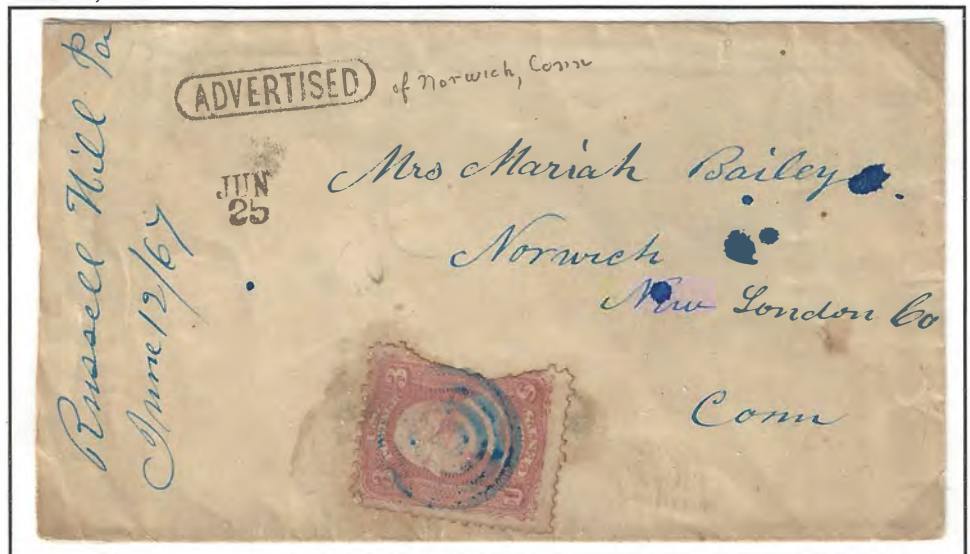 Russell Hill Pa
June 12/67
ADVERTISED of Norwich, Conn
JUN
25
Mrs Mariah Bailey
Norwich
New London Co
Conn
3 3